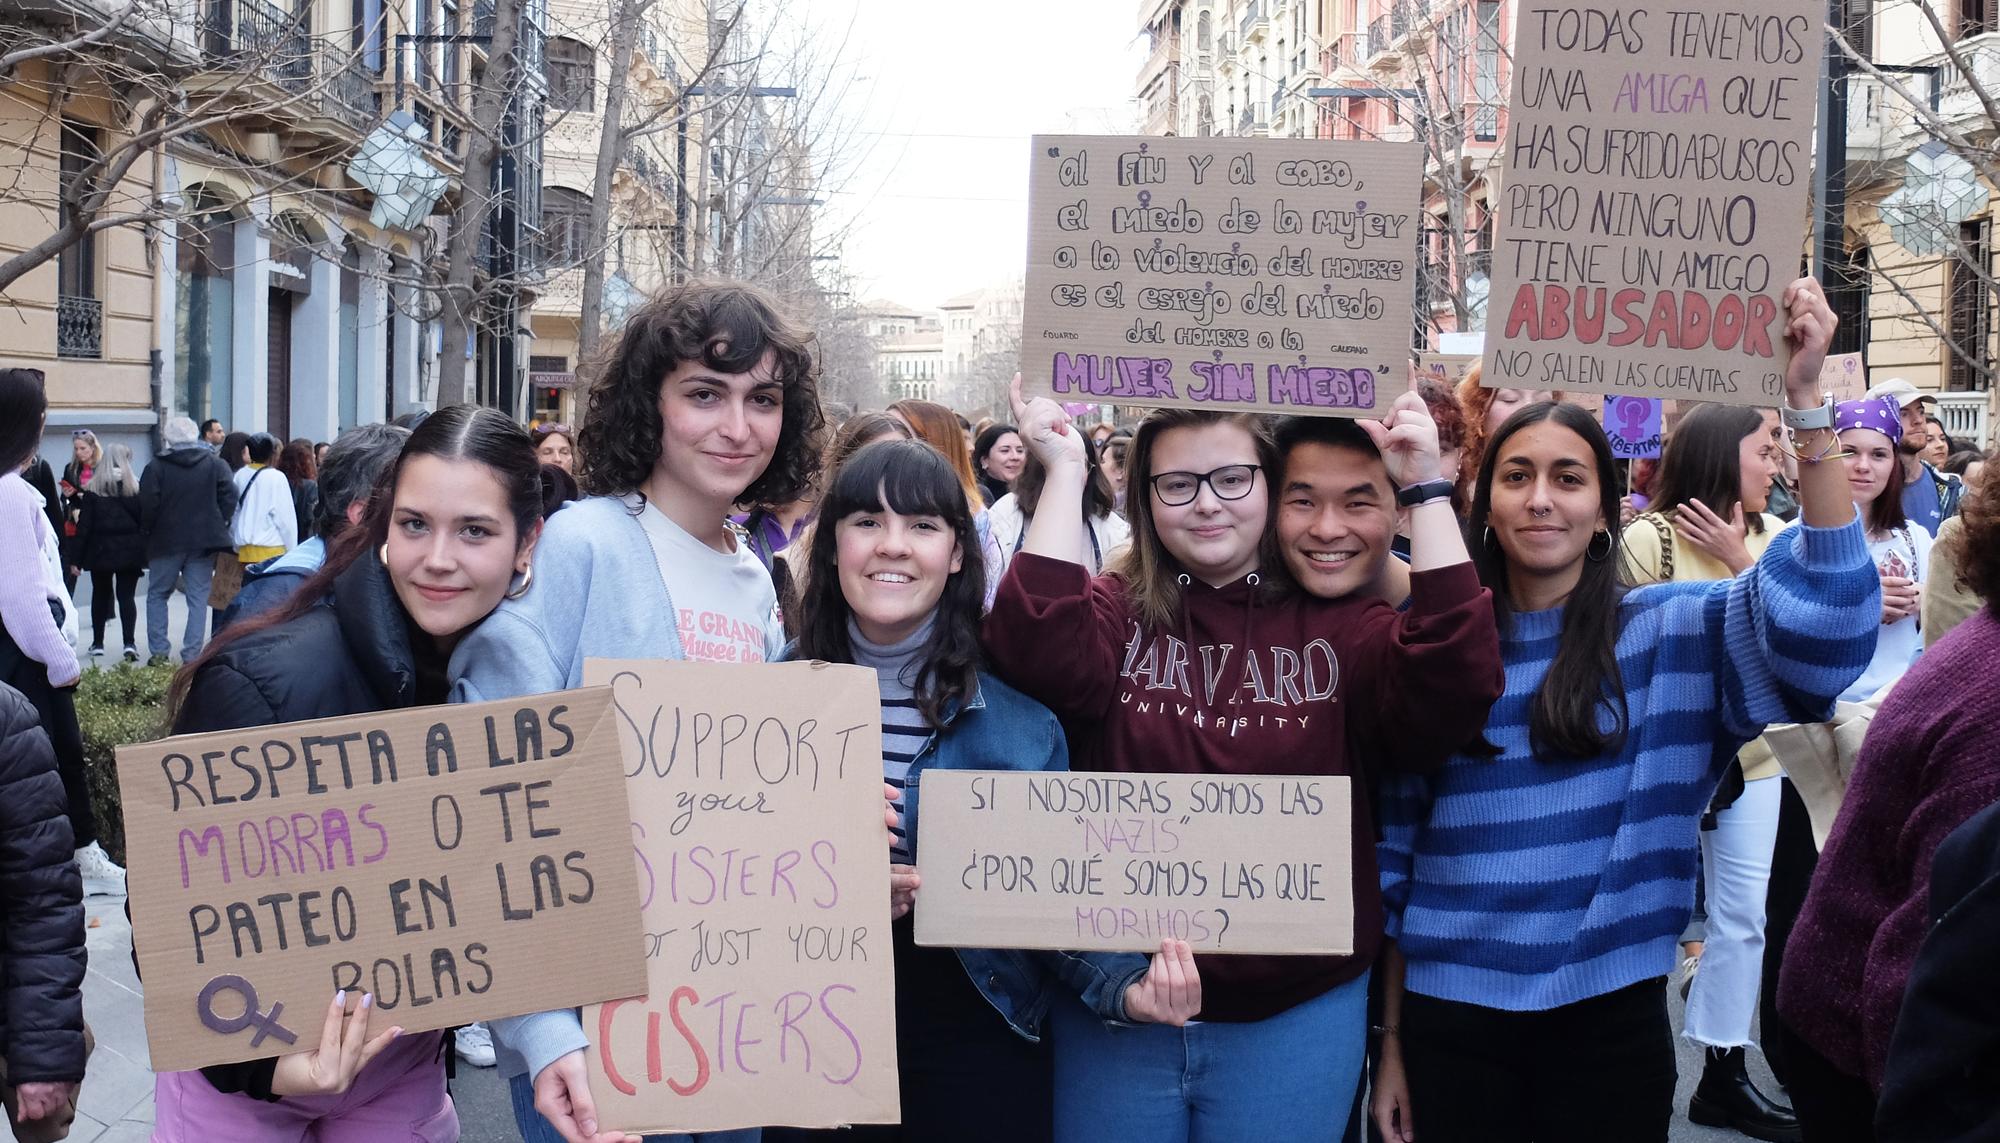 TODAS TENEMOS
UNA AMIGA QUE
HA SUFRIDO ABUSOS
PERO NINGUNO
TIENE UN AMIGO
ABUSADOR
NO SALEN LAS CUENTAS (?)
"al FIN Y al CABO,
el MIEDO de la MUJER
a la VIOLENCIA del HOMBRE
es el espejo del MIEDO
del HOMBRE a la
EDUARDO GALEANO
MUJER SIN MIEDO"
LIBERTAD
E GRAND
Museé de
HARVARD
UNIVERSITY
RESPETA A LAS
MORRAS O TE
PATEO EN LAS
BOLAS
SUPPORT
your
SISTERS
OT JUST YOUR
CISTERS
SI NOSOTRAS SOMOS LAS
"NAZIS"
¿POR QUÉ SOMOS LAS QUE
MORIMOS?